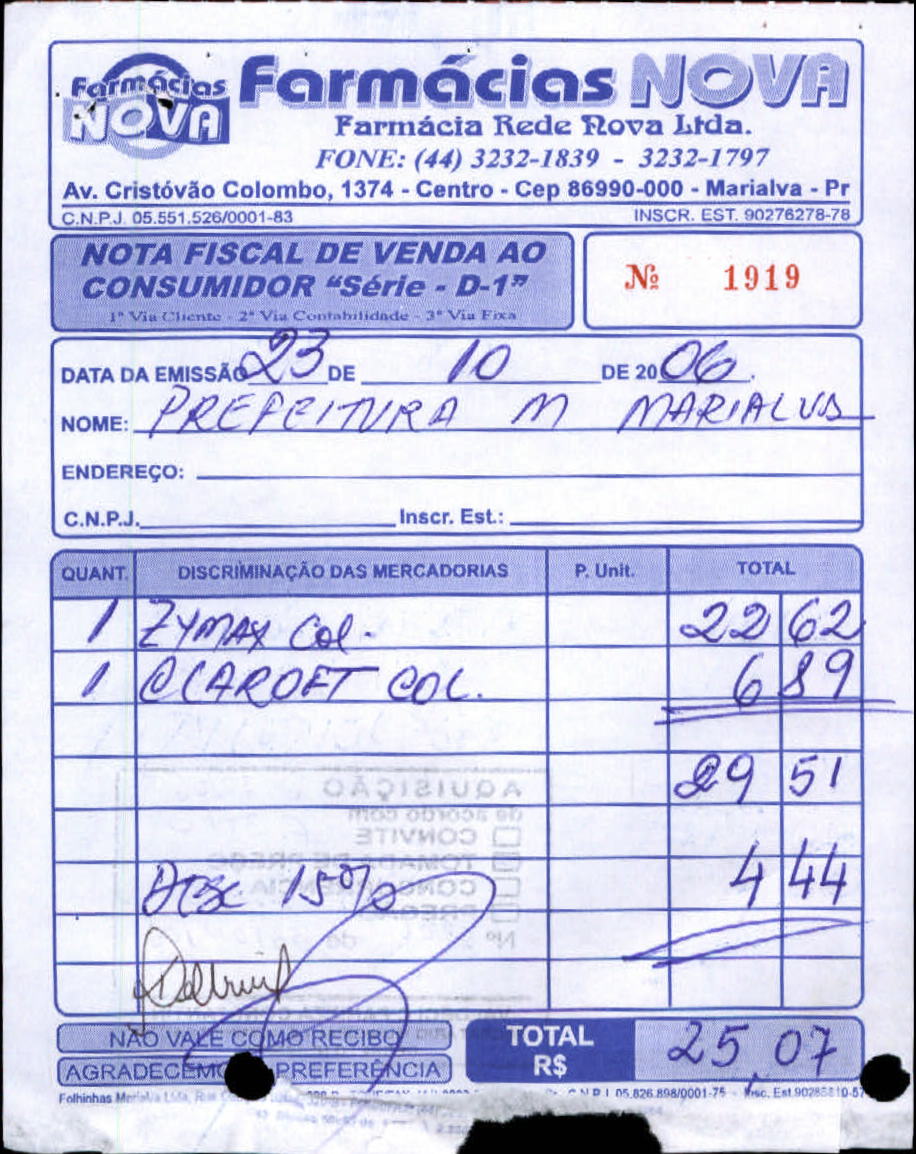 Farmácias NOVA
Farmácias NOVA
Farmácia Rede Nova Ltda.
FONE: (44) 3232-1839 - 3232-1797
Av. Cristóvão Colombo, 1374 - Centro - Cep 86990-000 - Marialva - Pr
C.N.P.J. 05.551.526/0001-83 INSCR. EST. 90276278-78
NOTA FISCAL DE VENDA AO
CONSUMIDOR "Série - D-1"
1ª Via Cliente - 2ª Via Contabilidade - 3ª Via Fixa
Nº 1919
DATA DA EMISSÃO 23 DE 10 DE 2006.
NOME: PREFEITURA M MARIALVA
ENDEREÇO:
C.N.P.J. Inscr. Est.:
QUANT. DISCRIMINAÇÃO DAS MERCADORIAS P. Unit. TOTAL
1 ZYMAX COL. 22 62
1 COL. 6 89
29 51
AQUISIÇÃO
de acordo com
CONVITE
TOMADA DE PREÇO
CONCORRÊNCIA
PREGÃO
Nº de
15% 4 44
NÃO VALE COMO RECIBO
AGRADECEMOS PREFERÊNCIA
TOTAL
R$
25 07
Folhinhas Marialva Ltda, C.N.P.J. 05.826.898/0001-75 - Insc. Est.